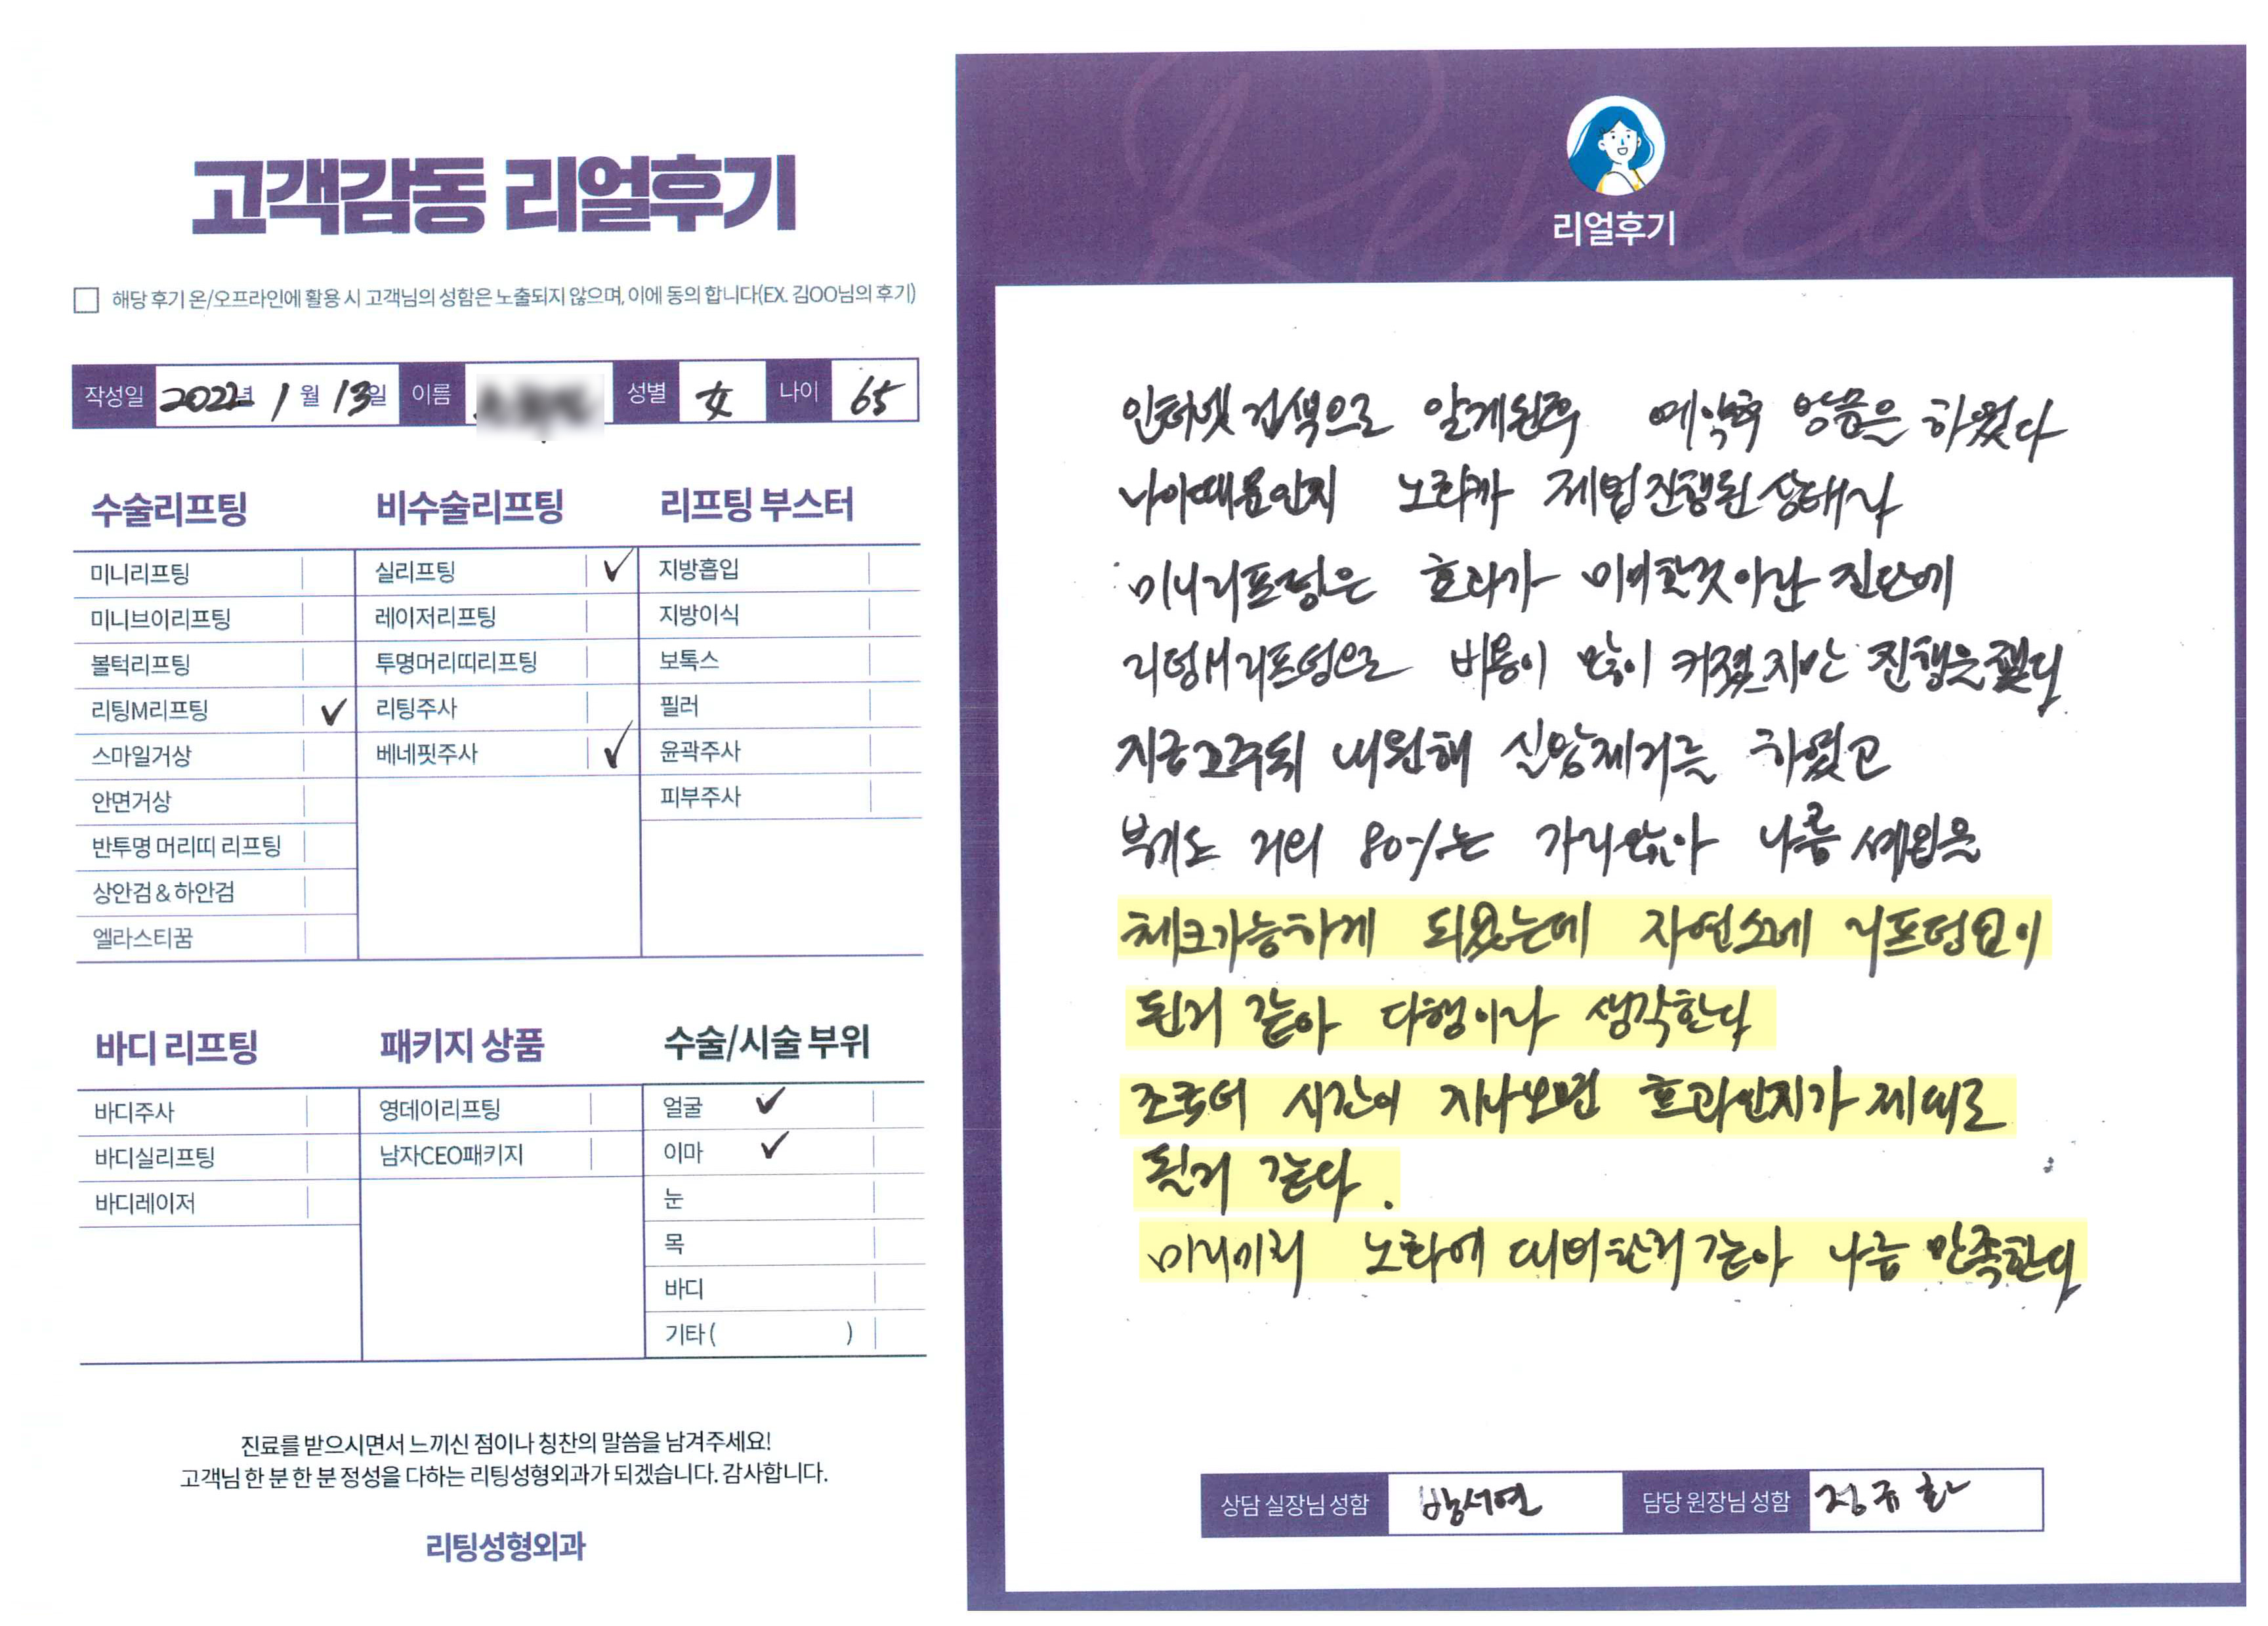 고객감동 리얼후기
해당 후기 온/오프라인에 활용 시 고객님의 성함은 노출되지 않으며, 이에 동의 합니다(EX. 김OO님의 후기)
작성일 2022년 1월 13일 이름 성별 女 나이 65
수술리프팅
미니리프팅
미니브이리프팅
볼턱리프팅
리팅M리프팅 ✓
스마일거상
안면거상
반투명 머리띠 리프팅
상안검 & 하안검
엘라스티꿈
비수술리프팅
실리프팅 ✓
레이저리프팅
투명머리띠리프팅
리팅주사
베네핏주사 ✓
리프팅 부스터
지방흡입
지방이식
보톡스
필러
윤곽주사
피부주사
바디 리프팅
바디주사
바디실리프팅
바디레이저
패키지 상품
영데이리프팅
남자CEO패키지
수술/시술 부위
얼굴 ✓
이마 ✓
눈
목
바디
기타 ( )
진료를 받으시면서 느끼신 점이나 칭찬의 말씀을 남겨주세요!
고객님 한 분 한 분 정성을 다하는 리팅성형외과가 되겠습니다. 감사합니다.
리팅성형외과
Review
리얼후기
인터넷 검색으로 알게된후 예약후 방문을 하였다
나이때문인지 노화가 제법진행된 상태라
미니리프팅은 효과가 미미할것이란 진단에
리팅M리프팅으로 비용이 많이 커졌지만 진행을했다
지금 2주되 내원해 실밥제거를 하였고
부기도 거의 80%는 가라앉아 나름 변화를
체크가능하게 되었는데 자연스레 리프팅이
된거 같아 다행이라 생각한다
조금더 시간이 지나보면 효과인지가 제대로
될거 같다.
미리미리 노화에 대비한거 같아 나름 만족한다
상담 실장님 성함 방서연 담당 원장님 성함 정규화